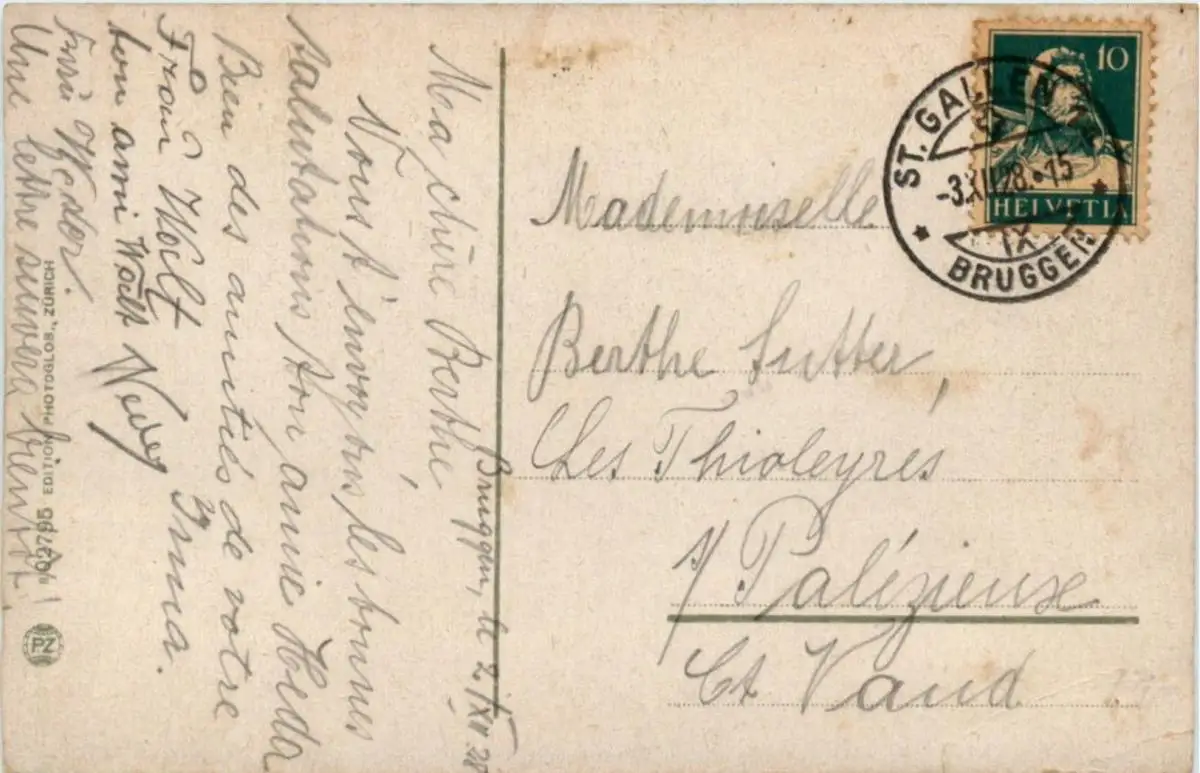 Bruggen, le 2./XII 28
Ma chère Berthe,
Vous t'envoyons les bonnes
salutations, ton amie Heda
Bien des amitiés de votre
Frau Walt Irma.
ton ami Walt
Une lettre suivera bientôt!
102795 EDITION PHOTOGLOB., ZÜRICH
PZ
Mademoiselle
Berthe Sutter,
Les Thioleyres
s/ Palézieuse
Ct Vaud
10
HELVETIA
ST. GALLEN
-3.XII.28.-15
IX
BRUGGEN